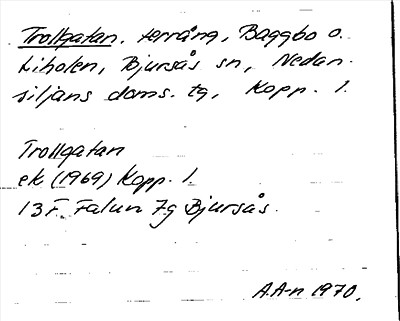 Trollgatan, terräng, Baggbo o.
Liholen, Bjursås sn, Nedan-
siljans doms. tg, Kopp. l.
Trollgatan
ek (1969) Kopp. l.
13F Falun 7g Bjursås.
A.A-n 1970.